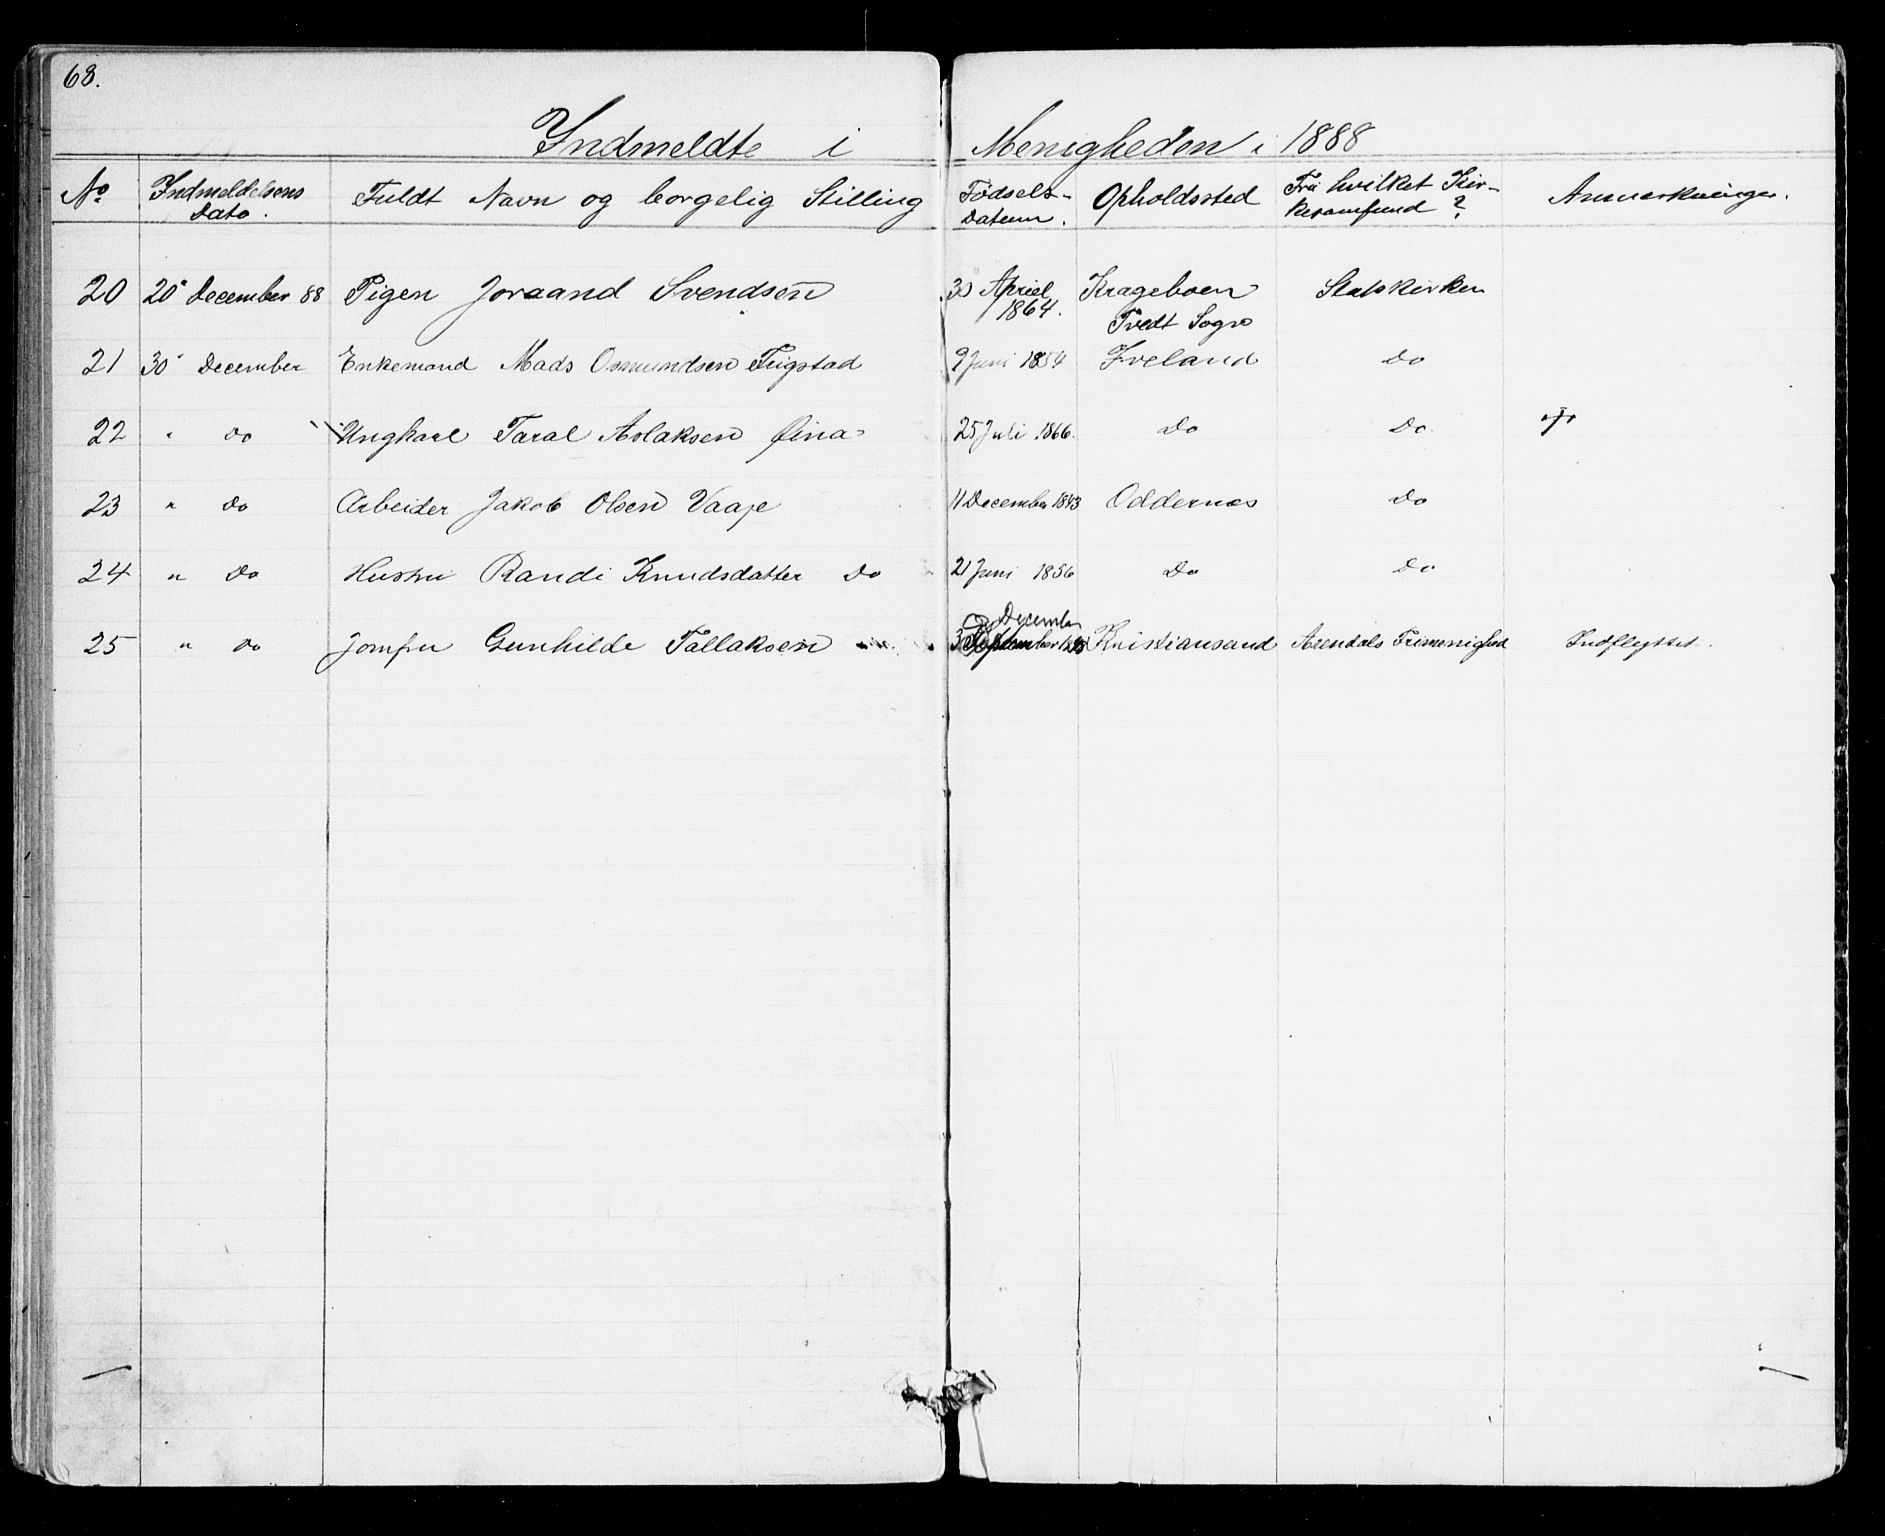 68.
Indmeldte i Menigheden i 1888
No Indmeldelsens Dato. Fuldt Navn og borgelig Stilling Födsels-Datum. Opholdssted Fra hvilket Kir-kesamfund? Anmærkninger.
20 20' December 88 Pigen Joraand Svendsen 30 Apriel 1864. Krageboen Tvedt Sogn Statskirken
21 30' December Enkemand Mads Osmundsen Frigstad 9 Juni 1854 Iveland Do
22 " Do Ungkarl Taral Aslaksen 25 Juli 1866. Do Do.
23 " Do Arbeider Jakob Olsen Vaaje 11 December 1843 Oddernes Do
24 " Do Hustru Randi Knudsdatter Do 21 Juni 1856 Do Do
25 " Do Jomfru Gunhilde Tallaksen December Kristiansand Arendals Frimenighed Indflyttet.